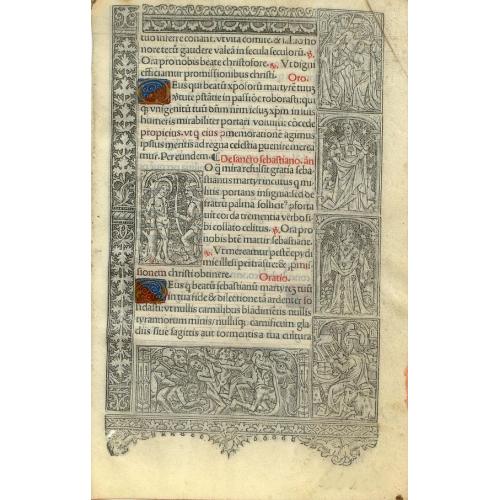 tuo inferre conant. vt vita comite. & i. ho
nore tecū gaudere valeā in secula seculorū. ℣.
Ora pro nobis beate christofore. ℟. Vt digni
efficiamur promissionibus christi. Oro.
Eus qui beatū xp̄oforū martyrē tuū
qui vnigenitū tuū dn̄m nr̄m iesū xp̄m in suis
humeris mirabiliter portari voluit: cōcede
propicius. vt q̄ eius cōmemorationē agimus
ipsius meritis ad regna celestia puenire merea
mur. Per eundem. ¶ De sancto sebastiano. an̄
O q̄ mira refulsit gratia seba
stianus martyr inclitus q̄ mi
litis portans insignia: sed de
fratrū palma sollicit⁹ pforta
uit corda trementia verbo si
bi collato celitus. ℣. Ora pro
nobis bt̄e martir sebastiane.
℟. Vt mereamur pestē epydi
mie illesi ptrāsire: & pmis
sionem christi obtinere. Oratio.
Eus q̄ beatū sebastianū martyrē tuū
in tua fide & dilectione tā ardenter so
lidasti: vt nullis carnalibus bladimētis nullis
tyrannorum minis/ nullisq̄ carnificum gla
diis siue sagittis aut tormentis a tua cultura